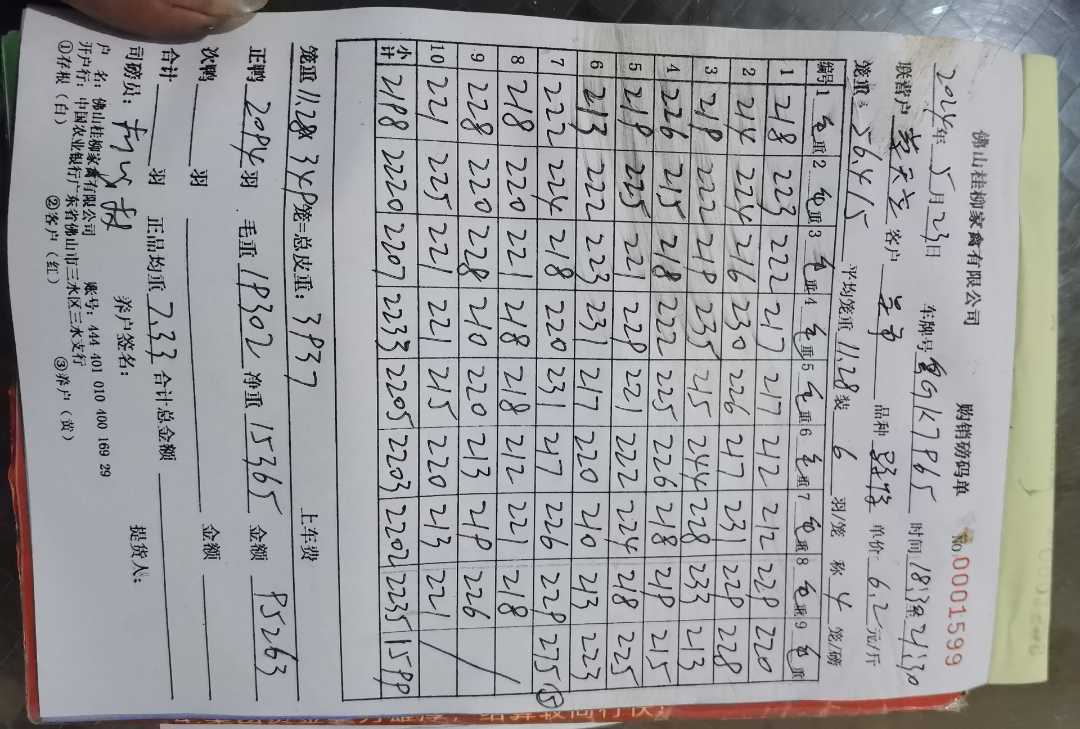 佛山桂柳家禽有限公司 购销磅码单 No.0001599
2024年5月23日 车牌号 粤GK7965 时间
联营户 客户 品种 单价 6.2元/斤
笼重: 56.4/5 平均笼重 11.28 装 6 羽/笼 称 4 笼/磅
编号 1 毛重 2 毛重 3 毛重 4 毛重 5 毛重 6 毛重 7 毛重 8 毛重 9 毛重
1 218 223 222 217 217 212 212 229 220
2 214 224 216 230 226 217 231 229 228
3 219 222 219 235 215 244 228 233 213
4 226 215 218 222 225 226 218 219 215
5 219 225 221 229 221 222 224 218 225
6 213 222 223 231 217 220 210 213 223
7 222 224 218 220 231 217 226 229 275 ⑤
8 218 220 221 218 218 212 221 218
9 228 220 228 210 220 213 219 226
10 221 225 221 221 215 220 213 221
小计 2198 2220 2207 2233 2205 2203 2202 2235 1599
笼重 11.28 349笼=总皮重: 3937 上车费
正鸭 2094 羽 毛重 19302 净重 15365 金额 95263
次鸭 羽 金额
合计 羽 正品均重 7.33 合计总金额
司磅员: 养户签名: 提货人:
户 名: 佛山桂柳家禽有限公司 账号: 444 401 010 400 169 29
开户行: 中国农业银行广东省佛山市三水区三水支行
①存根（白） ②客户（红） ③养户（黄）